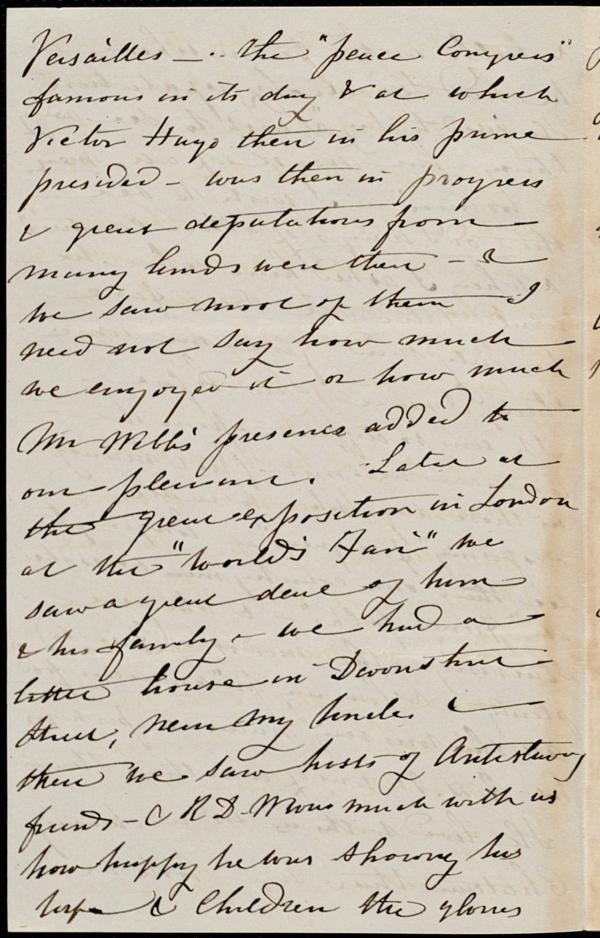 Versailles — .. the "peace Congress"
famous in its day & at which
Victor Hugo then in his prime
presided – was then in progress
& great deputations from
many lands were there – &
we saw most of them I
need not say how much
we enjoyed it or how much
Mr Webb's presence added to
our pleasure. Later at
the great exposition in London
at the "World's Fair" we
saw a great deal of him
& his family – we had a
little house in Devonshire
Street, near my Uncle. &
there we saw hosts of Antislavery
friends – & R D W was much with us
how happy he was showing his
wife & Children the glories